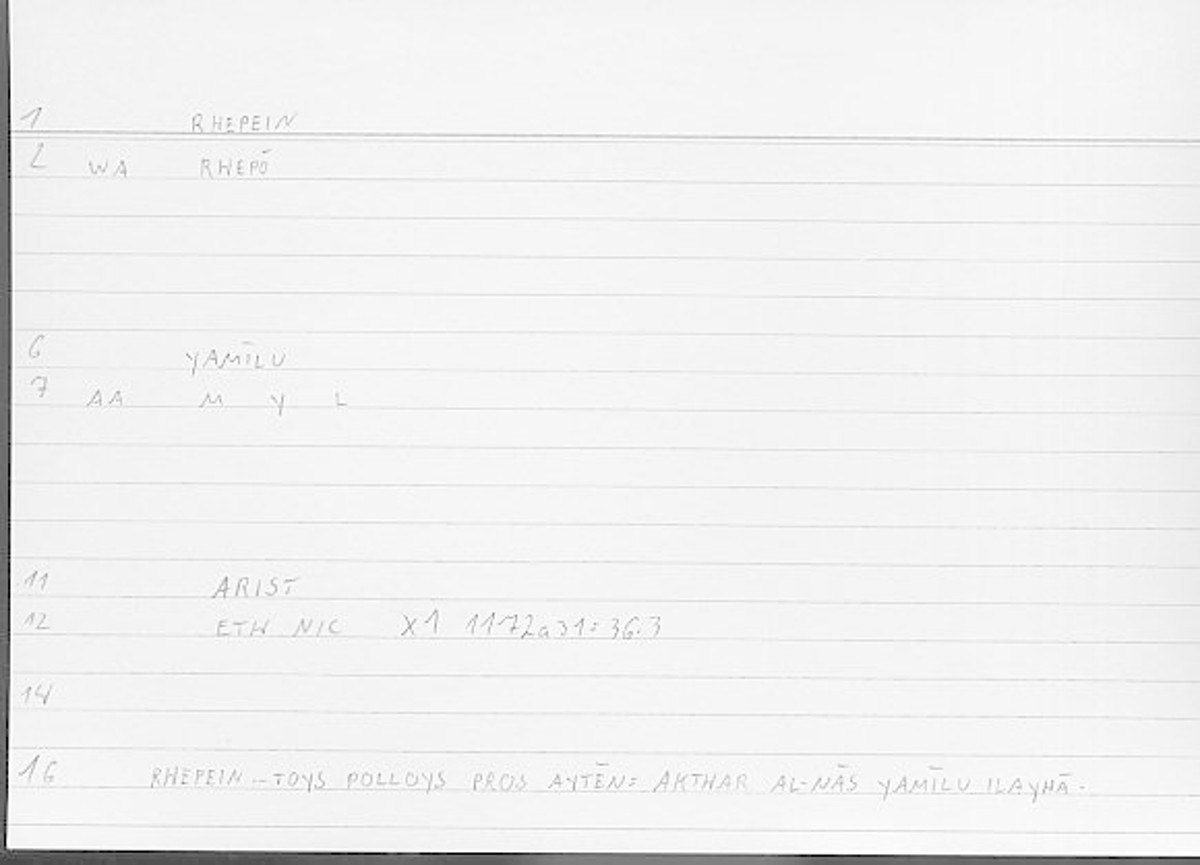 1 RHEPEIN
2 WA RHEPŌ
6 YAMĪLU
7 AA M Y L
11 ARIST
12 ETH NIC X1 1172a31: 36.3
14
16 RHEPEIN – TOYS POLLOYS PROS AYTĒN: AKTHAR AL-NĀS YAMĪLU ILAYHĀ.